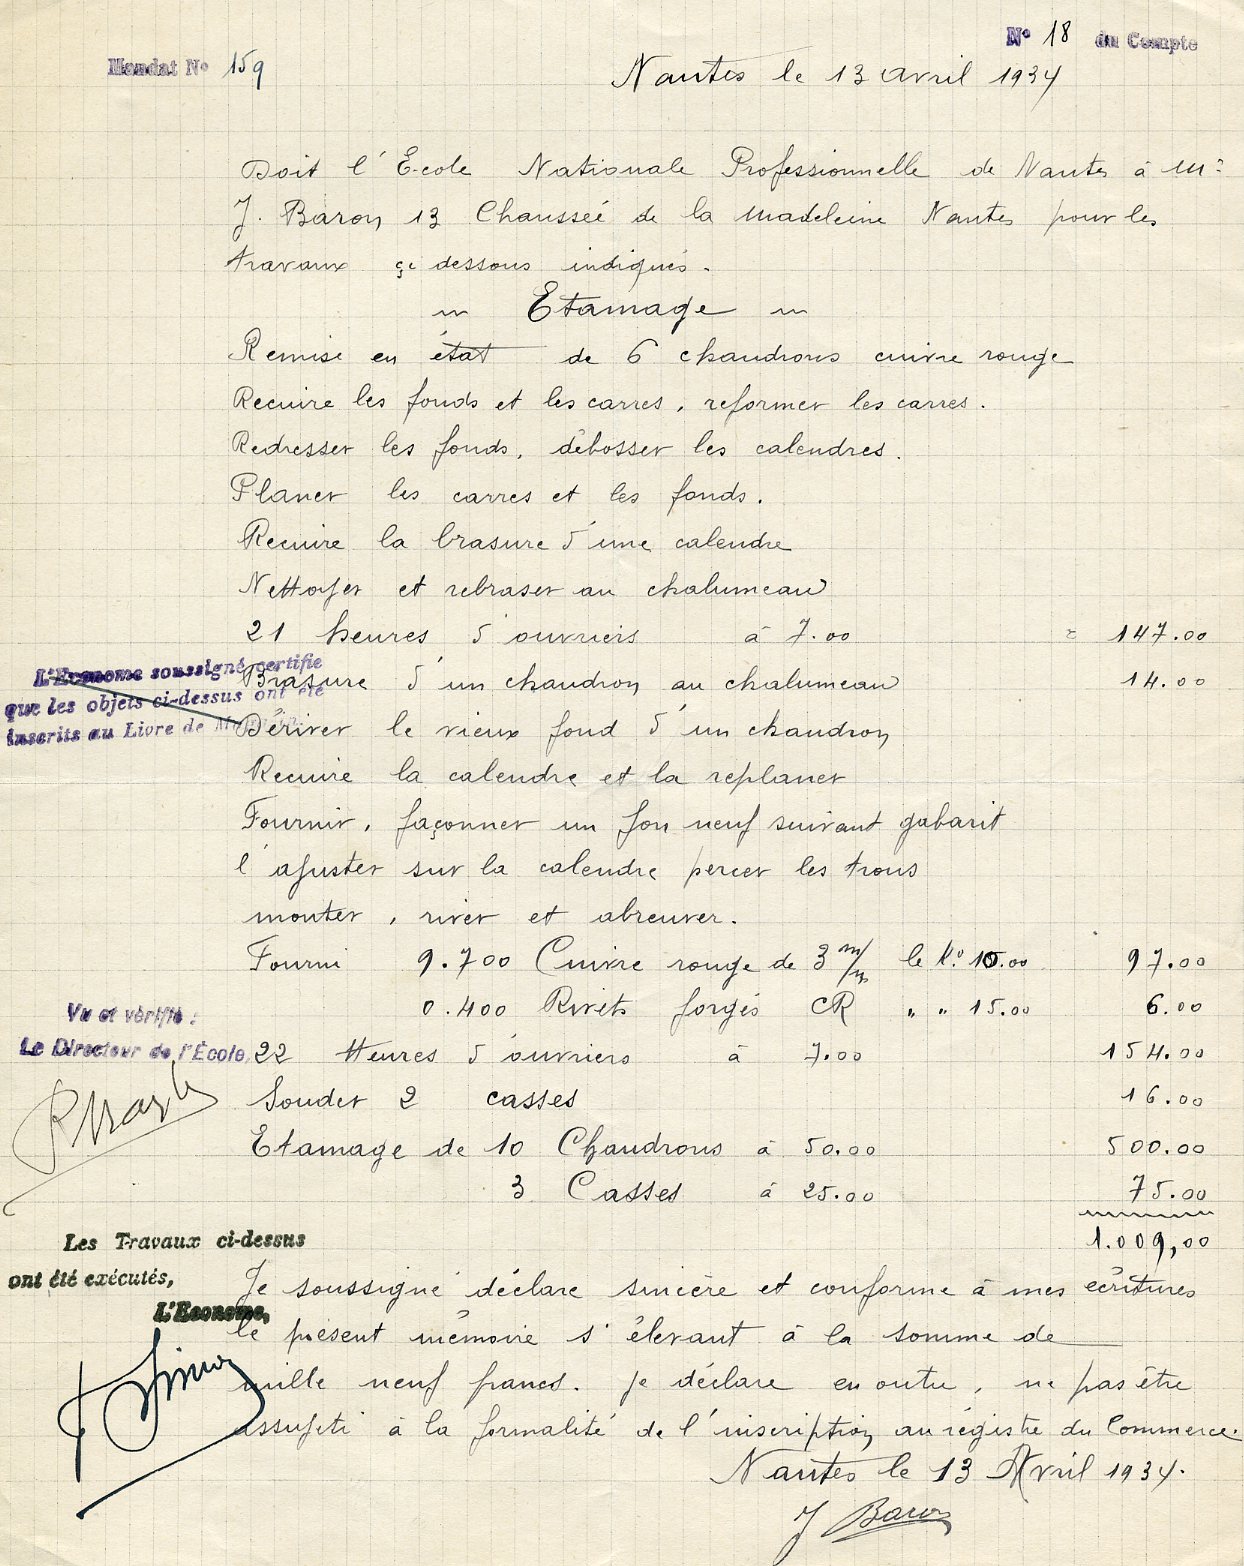 N° 18 du Compte
Mandat N° 159
Nantes le 13 avril 1934
Doit l'École Nationale Professionnelle de Nantes à Mr
J. Baron 13 Chausseé de la Madeleine Nantes pour les
travaux çi dessous indiqués.
Etamage
Remise en état de 6 chaudrons cuivre rouge
Recuire les fonds et les carres, reformer les carres.
Redresser les fonds, débosser les calendres.
Planer les carres et les fonds.
Recuire la brasure d'une calendre
Nettoyer et rebraser au chalumeau
21 heures d'ouvriers à 7.00 = 147.00
L'Econome soussigné certifie
que les objets ci-dessus ont été
inscrits au Livre de
Brasure d'un chaudron au chalumeau 14.00
Dériver le vieux fond d'un chaudron
Recuire la calendre et la replaner
Fournir, façonner un fon neuf suivant gabarit
l'ajuster sur la calendre percer les trous
monter, river et abreuver.
Fourni 9.700 Cuivre rouge de 3 m/m le K° 10.00 97.00
0.400 Rivets forgés CR " " 15.00 6.00
Vu et vérifié :
Le Directeur de l'École,
22 Heures d'ouvriers à 7.00 154.00
Souder 2 casses 16.00
Etamage de 10 Chaudrons à 50.00 500.00
3 Casses à 25.00 75.00
1.009,00
Les Travaux ci-dessus
ont été exécutés,
L'Econome,
Je soussigné déclare sincère et conforme à mes écritures
le présent mémoire s'élevant à la somme de
mille neuf francs. Je déclare en outre, ne pas être
assujeti à la formalité de l'inscription au régistre du Commerce.
Nantes le 13 Avril 1934.
J Baron